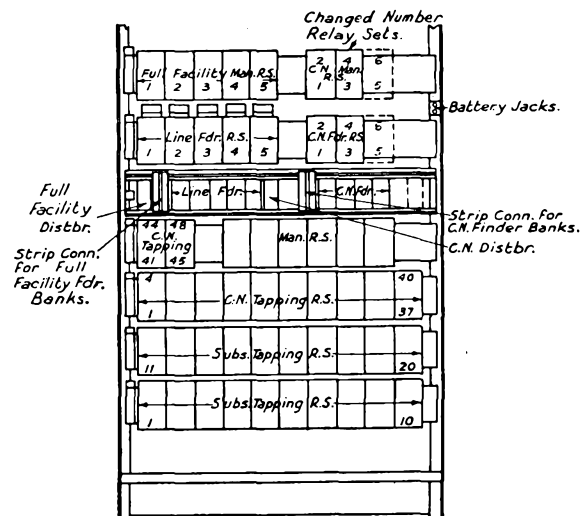 Changed Number
Relay Sets.
Full Facility Man. R.S.
1 2 3 4 5
2 4 6
C.N. Man.
R.S.
1 3 5
Battery Jacks.
Line Fdr. R.S.
1 2 3 4 5
2 4 6
C.N. Fdr. RS
1 3 5
Full
Facility
Distbr.
Line Fdr.
C.N. Fdr.
Strip Conn. for
C.N. Finder Banks.
C.N. Distbr.
Strip Conn.
for Full
Facility Fdr.
Banks.
44 48
C.N.
Tapping
41 45
Man. R.S.
4 40
C.N. Tapping R.S.
1 37
Subs. Tapping R.S.
11 20
Subs. Tapping R.S.
1 10